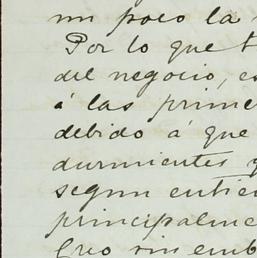 un poco la
Por lo que t
del negocio, es
á las prime
debido á que
durmientes y
segun entien
principalme
Creo sin emb